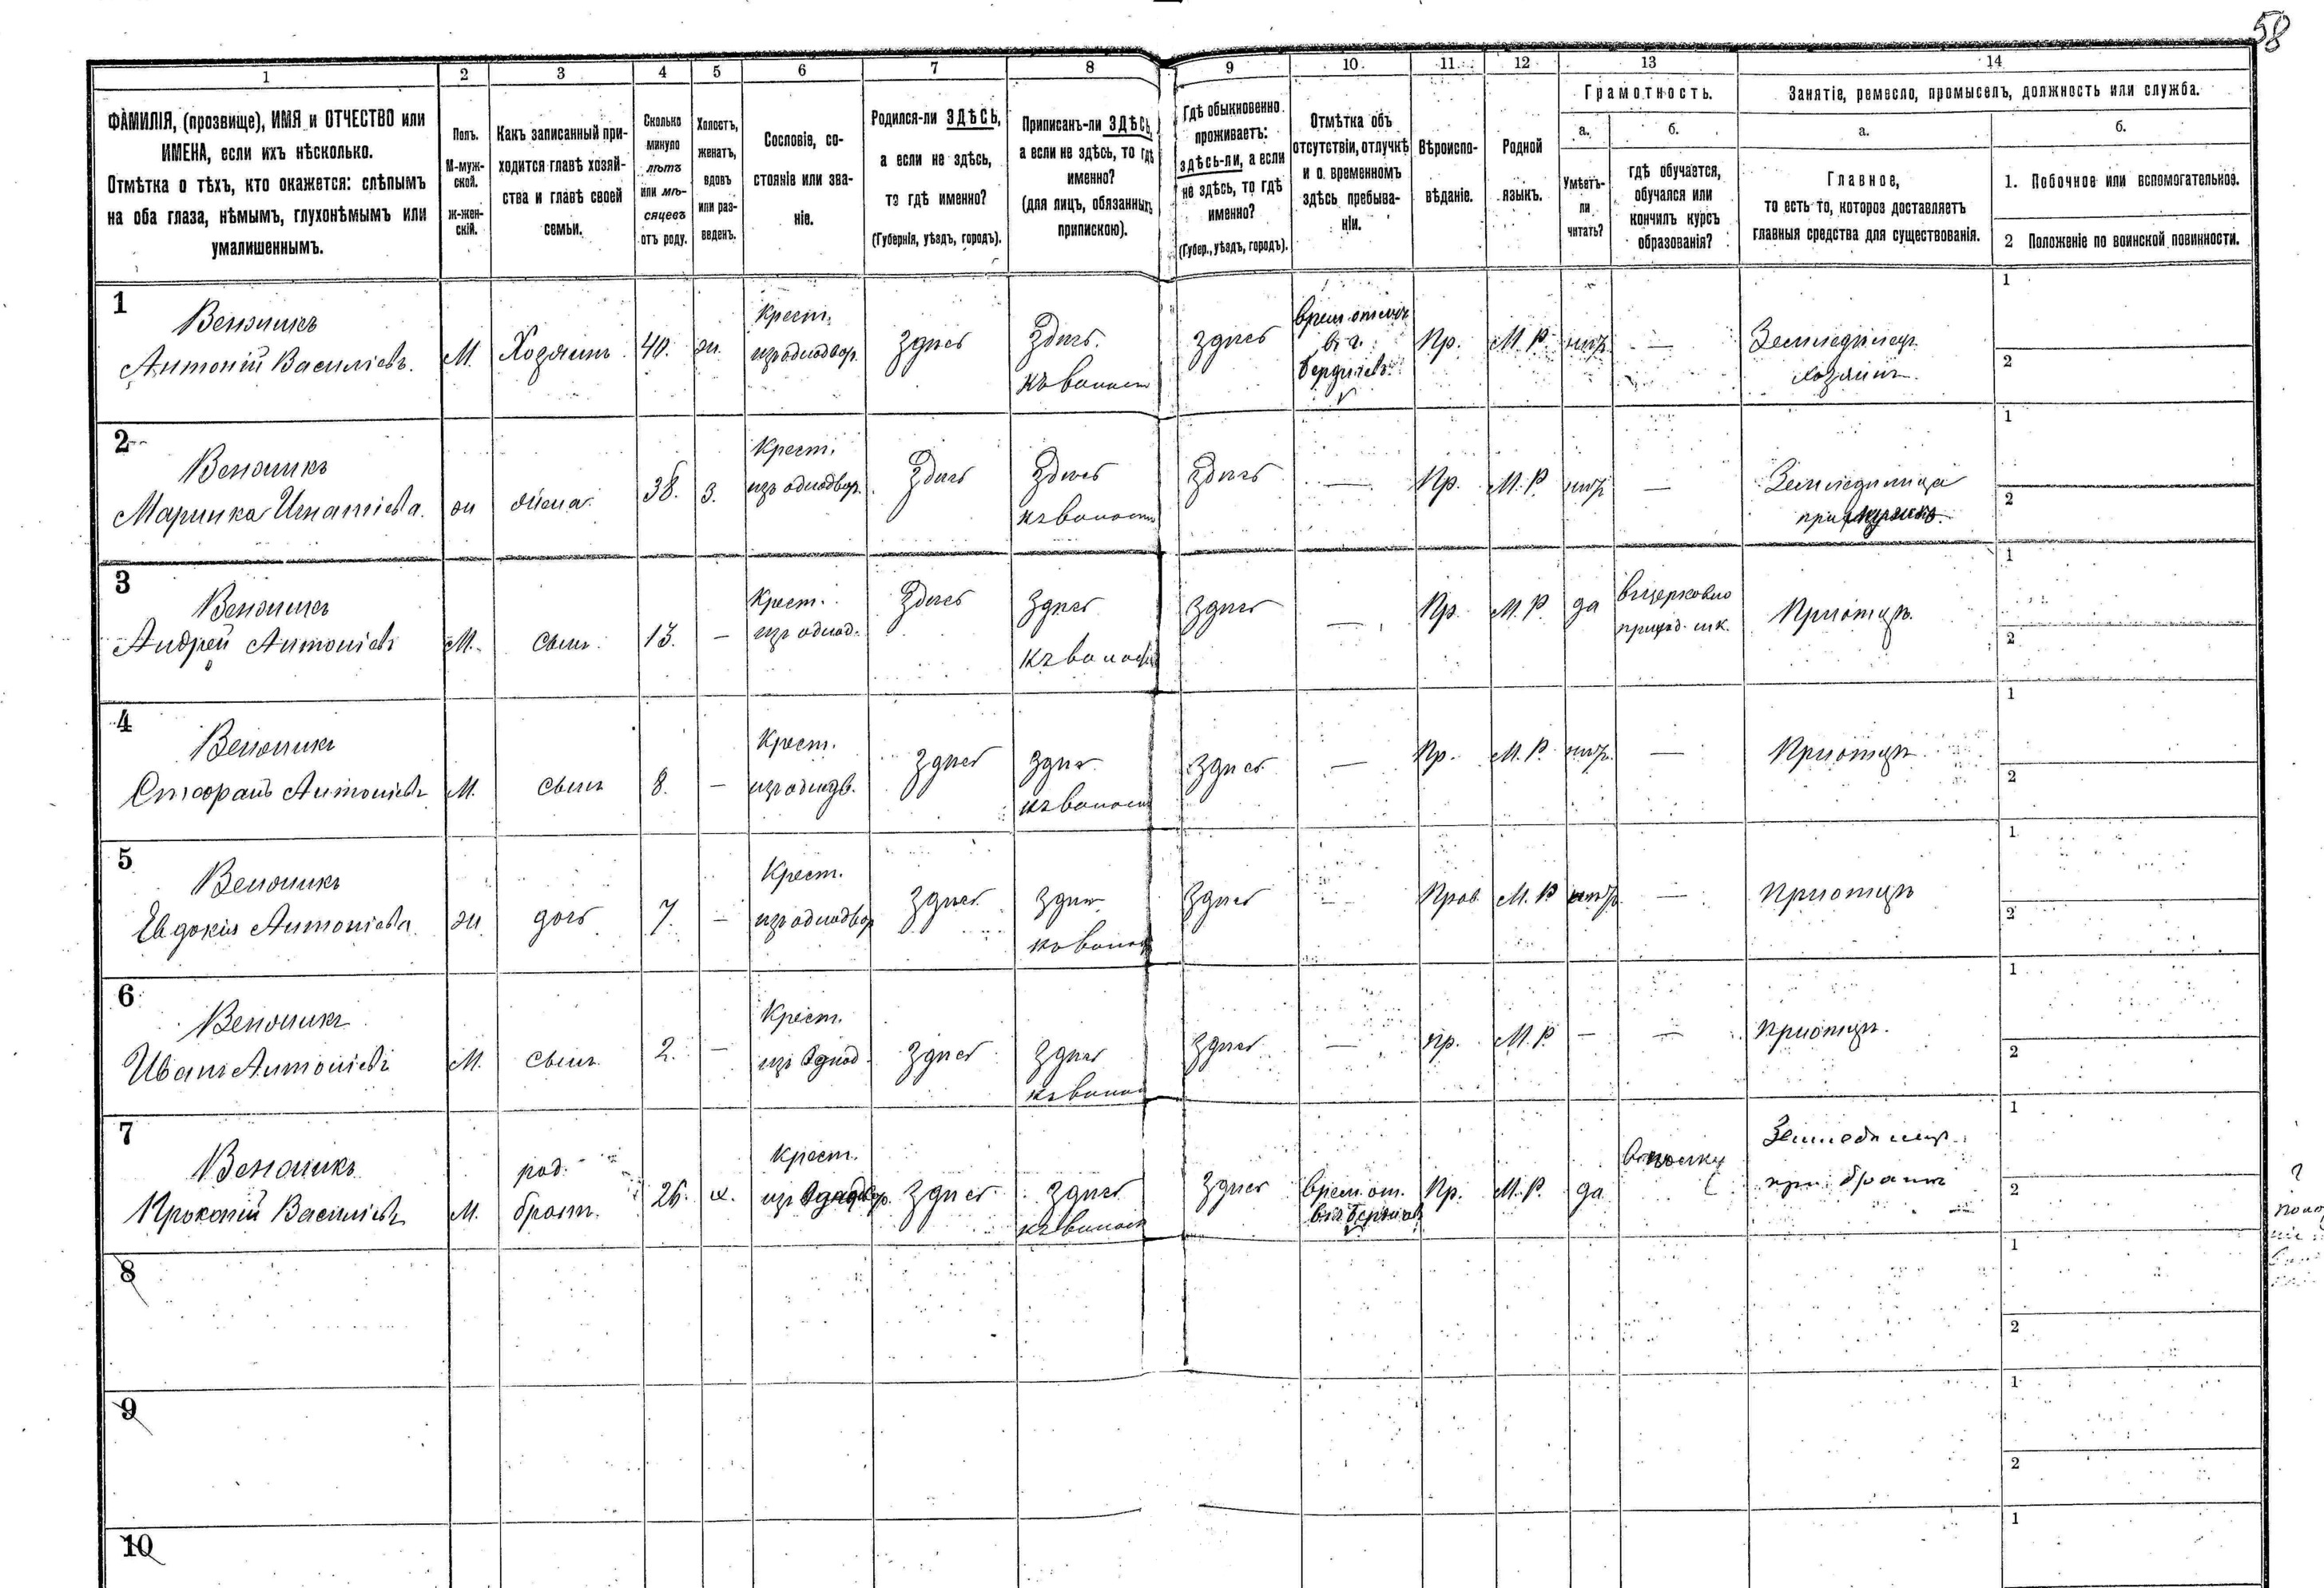 58
1 2 3 4 5 6 7 8 9 10. 11. 12 13 14
ФАМИЛІЯ, (прозвище), ИМЯ и ОТЧЕСТВО или
ИМЕНА, если ихъ нѣсколько.
Отмѣтка о тѣхъ, кто окажется: слѣпымъ
на оба глаза, нѣмымъ, глухонѣмымъ или
умалишеннымъ.
Полъ.
М-муж-
ской.
Ж-жен-
скій.
Какъ записанный при-
ходится главѣ хозяй-
ства и главѣ своей
семьи.
Сколько
минуло
лѣтъ
или мѣ-
сяцевъ
отъ роду.
Холостъ,
женатъ,
вдовъ
или раз-
веденъ.
Сословіе, со-
стояніе или зва-
ніе.
Родился-ли ЗДѢСЬ,
а если не здѣсь,
то гдѣ именно?
(Губернія, уѣздъ, городъ).
Приписанъ-ли ЗДѢСЬ,
а если не здѣсь, то гдѣ
именно?
(для лицъ, обязанныхъ
припискою).
Гдѣ обыкновенно
проживаетъ:
здѣсь-ли, а если
не здѣсь, то гдѣ
именно?
(Губер., уѣздъ, городъ).
Отмѣтка объ
отсутствіи, отлучкѣ
и о временномъ
здѣсь пребыва-
ніи.
Вѣроиспо-
вѣданіе.
Родной
языкъ.
Грамотность.
а.
Умѣетъ-
ли
читать?
б.
гдѣ обучается,
обучался или
кончилъ курсъ
образованія?
Занятіе, ремесло, промыселъ, должность или служба.
а.
Главное,
то есть то, которое доставляетъ
главныя средства для существованія.
б.
1. Побочное или вспомогательное.
2 Положеніе по воинской повинности.
1
Антоній Василіевъ. М. Хозяинъ 40. ж. Крест. изъ однодвор. здѣсь здѣсь. къ волост здѣсь Пр. М. Р. нѣтъ — Земледѣлецъ хозяинъ. 1 2
2
Маринка Игнатіева. ж жена 38. з. Крест. изъ однодвор. здѣсь здѣсь къ волости здѣсь — Пр. М. Р. нѣтъ — Земледѣлица при 1 2
3
Андрей Антоніевъ М. сынъ 13. — Крест. изъ однод. здѣсь здѣсь къ волости здѣсь — Пр. М. Р. да въ церковно приход. шк. При отцѣ. 1 2
4
Антоніевъ М. сынъ 8. — Крест. изъ однодв. здѣсь здѣсь къ волост здѣсь — Пр. М. Р. нѣтъ — При отцѣ 1 2
5
Евдокія Антоніева ж дочь 7. — Крест. изъ однодвор здѣсь здѣсь къ волос здѣсь — Прав М. Р нѣтъ — При отцѣ 1 2
6
Иванъ Антоніевъ М. сынъ 2. — Крест. изъ Однод здѣсь здѣсь къ волос здѣсь — пр. М. Р. — — При отцѣ. 1 2
7
Прокопій Василіевъ М. род. братъ. 26. х. Крест. изъ Однодвор. здѣсь здѣсь къ волост здѣсь Врем от. Пр. М. Р. да Земледѣлецъ при братѣ 1 2
8 1 2
9 1 2
10 1